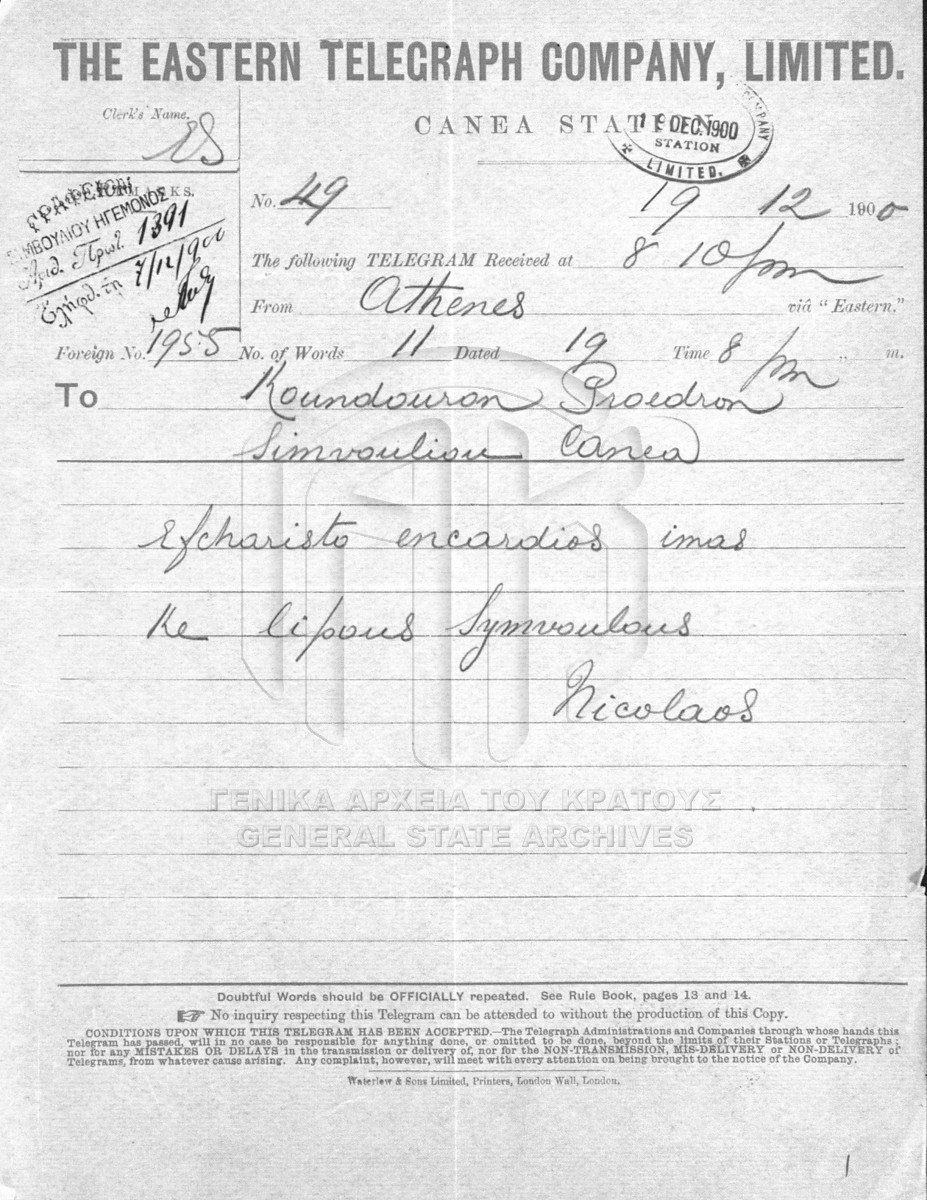 THE EASTERN TELEGRAPH COMPANY, LIMITED.
Clerk's Name.
CANEA STATION
COMPANY
19 DEC. 1900
STATION
LIMITED.
ΓΡΑΦΕΙΟΝ
ΣΥΜΒΟΥΛΙΟΥ ΗΓΕΜΟΝΟΣ
Ἀριθ. Πρωτ. 1391
Ἐλήφθ. τῇ 7/12/900
No. 49
19 12 1900
The following TELEGRAM Received at 8 10 pm
From Athenes viâ "Eastern."
Foreign No. 1955 No. of Words 11 Dated 19 Time 8 pm m.
To Koundouron Proedron
Simvouliou Canea
Efcharisto encardios imas
ke lipous Symvoulous
Nicolaos
ΓΕΝΙΚΑ ΑΡΧΕΙΑ ΤΟΥ ΚΡΑΤΟΥΣ
GENERAL STATE ARCHIVES
Doubtful Words should be OFFICIALLY repeated. See Rule Book, pages 13 and 14.
No inquiry respecting this Telegram can be attended to without the production of this Copy.
CONDITIONS UPON WHICH THIS TELEGRAM HAS BEEN ACCEPTED.—The Telegraph Administrations and Companies through whose hands this
Telegram has passed, will in no case be responsible for anything done, or omitted to be done, beyond the limits of their Stations or Telegraphs;
nor for any MISTAKES OR DELAYS in the transmission or delivery of, nor for the NON-TRANSMISSION, MIS-DELIVERY or NON-DELIVERY of
Telegrams, from whatever cause arising. Any complaint, however, will meet with every attention on being brought to the notice of the Company.
Waterlow & Sons Limited, Printers, London Wall, London.
1